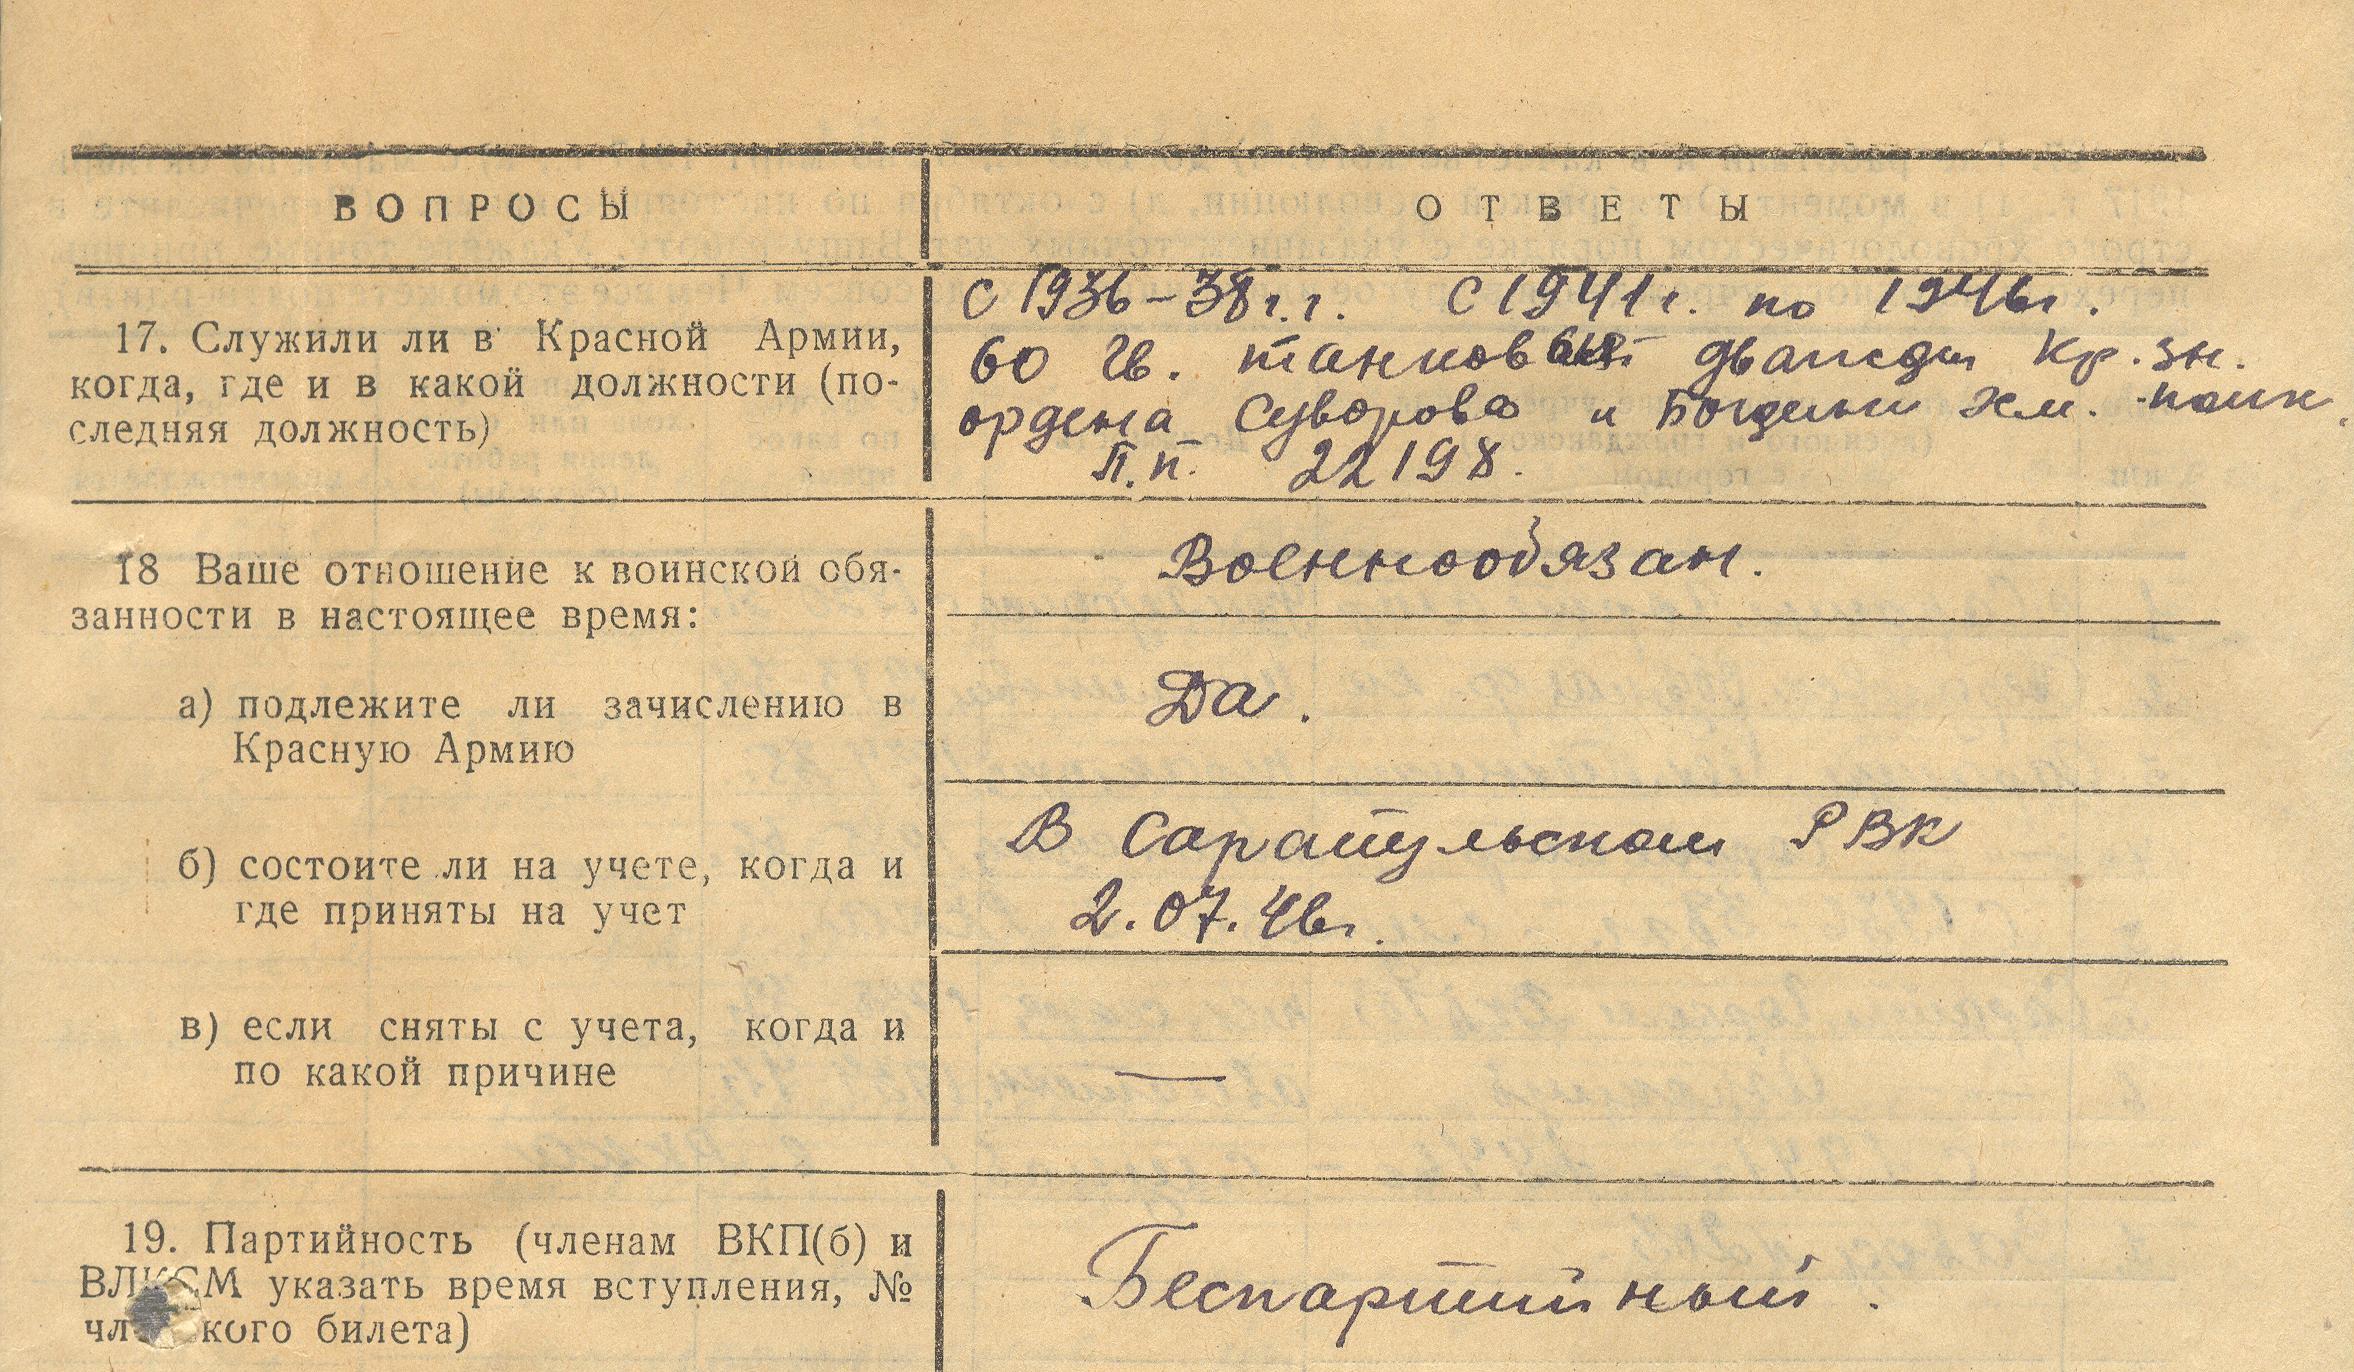 ВОПРОСЫ
ОТВЕТЫ
17. Служили ли в Красной Армии,
когда, где и в какой должности (по-
следняя должность)
С 1936–38г.г. С 1941г. по 1946г.
60 Гв. танковый дважды Кр. Зн.
ордена Суворова и Богдана Хм. полк.
П.п. 22198.
18 Ваше отношение к воинской обя-
занности в настоящее время:
Военнообязан.
а) подлежите ли зачислению в
Красную Армию
Да.
б) состоите ли на учете, когда и
где приняты на учет
В Сарапульском РВК
2.07.46г.
в) если сняты с учета, когда и
по какой причине
—
19. Партийность (членам ВКП(б) и
ВЛКСМ указать время вступления, №
кого билета)
Беспартийный.